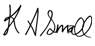 K A Small